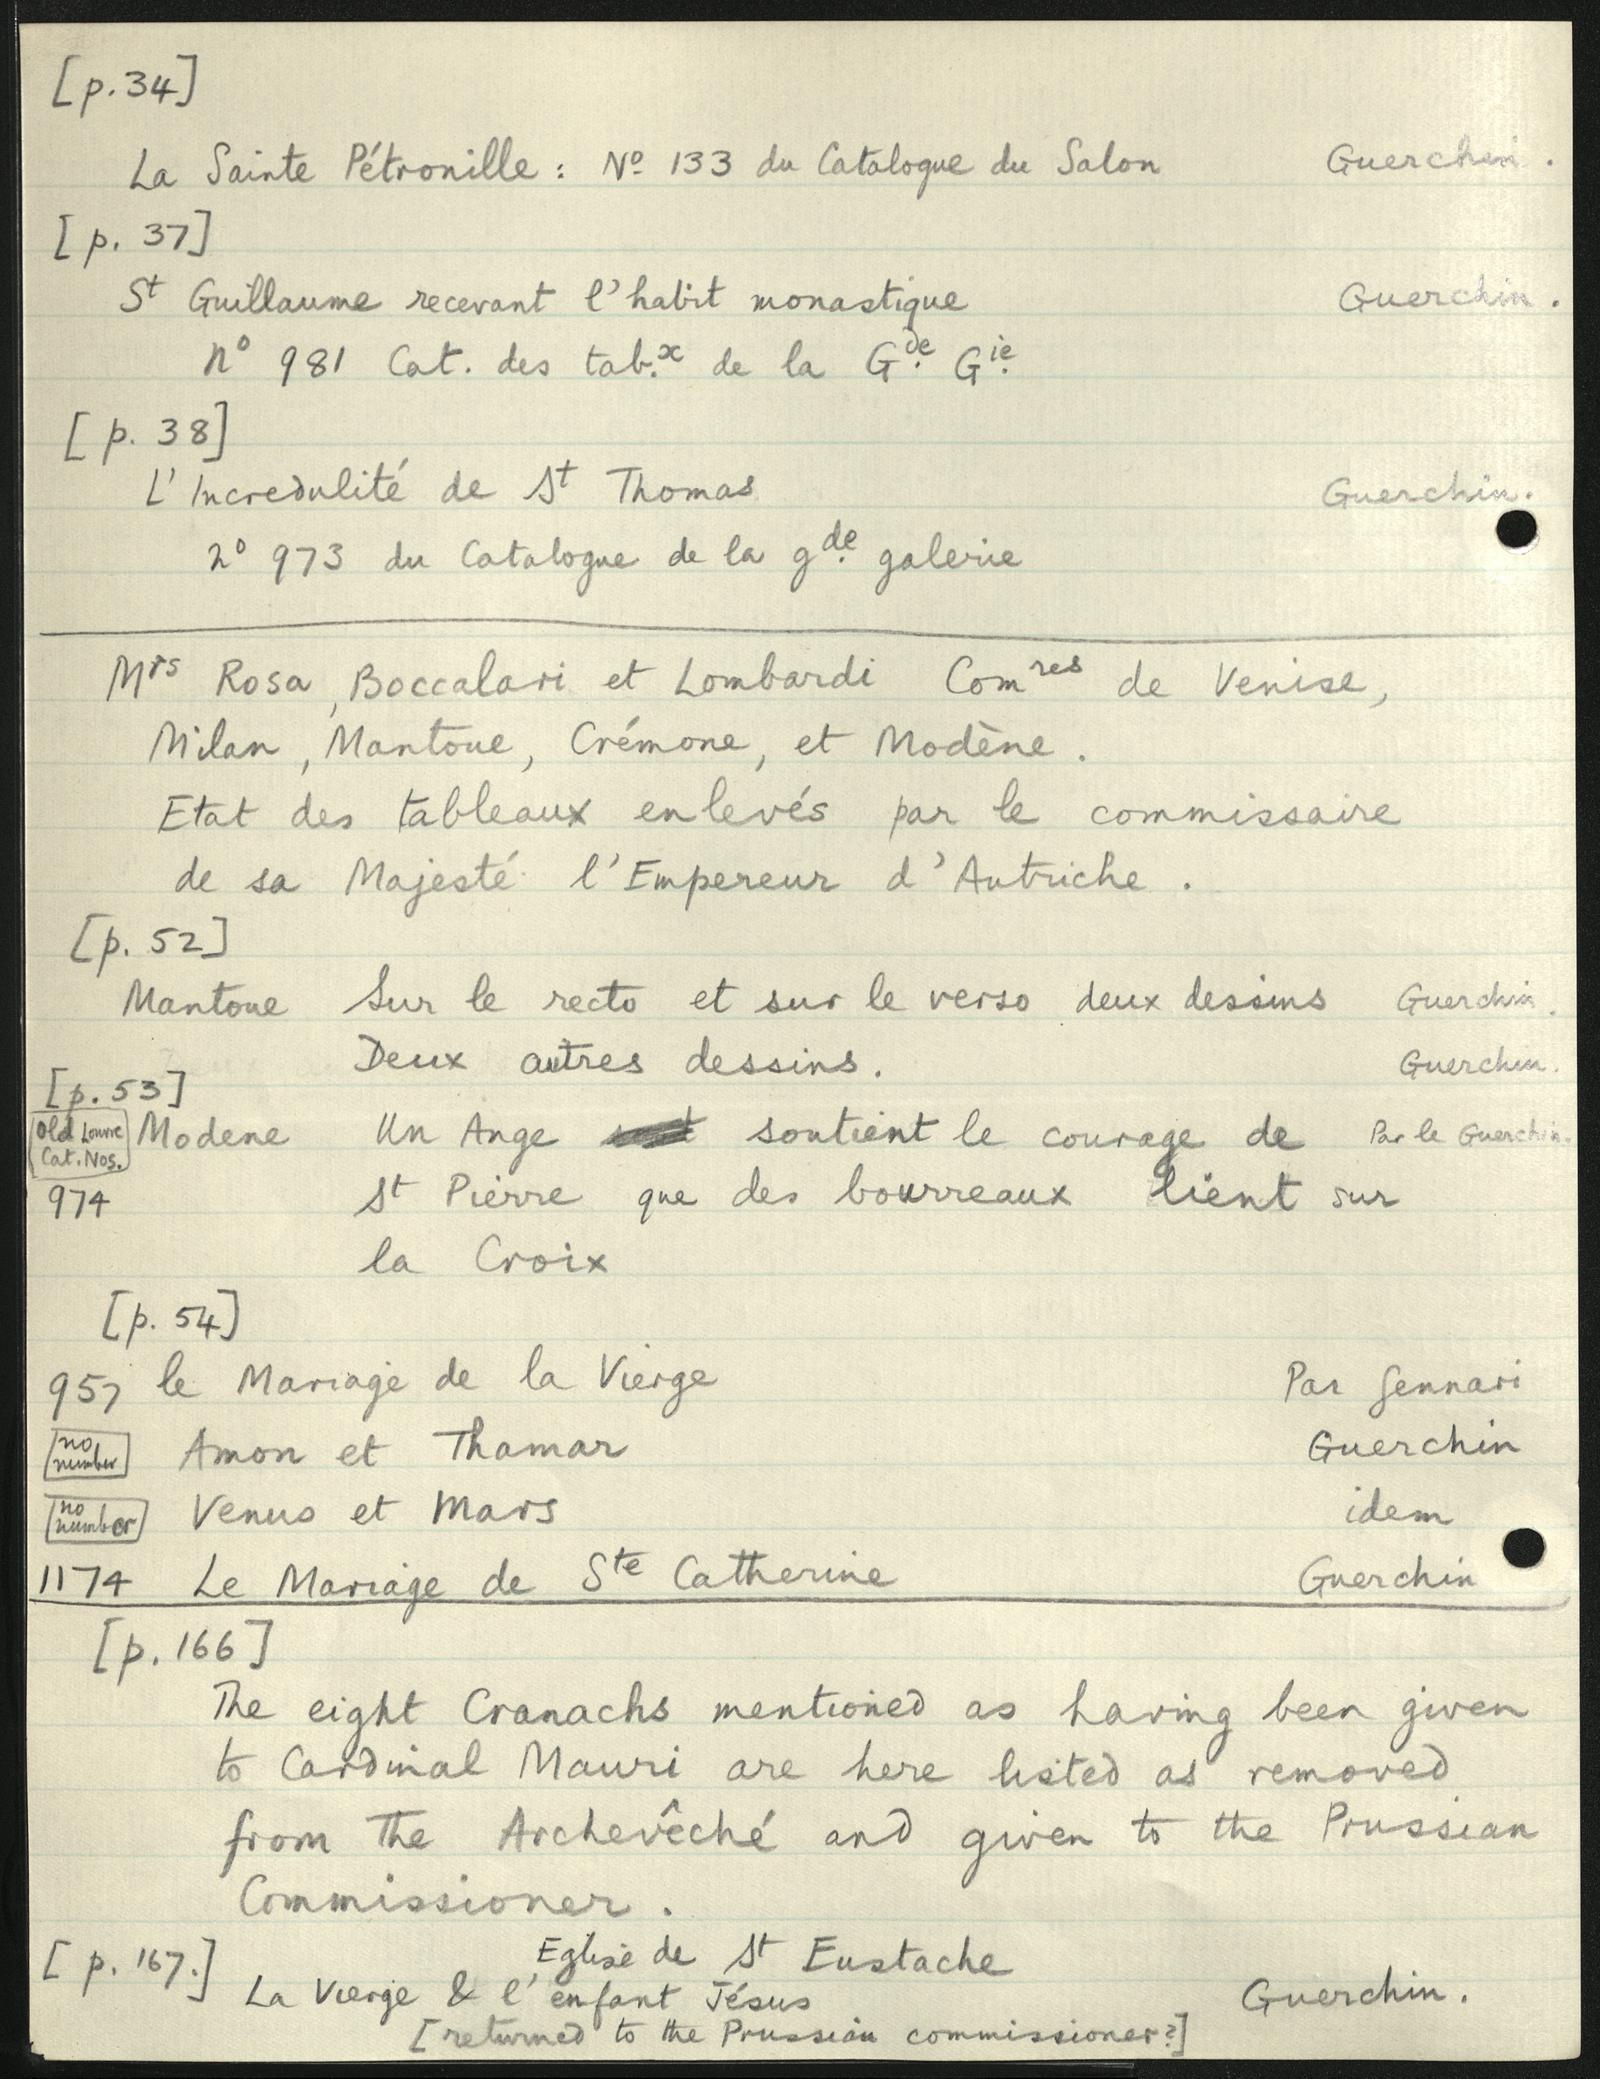 [p.34]
La Sainte Pétronille : Nº 133 du Catalogue du Salon Guerchin.
[p. 37]
St Guillaume recevant l'habit monastique Guerchin.
nº 981 Cat. des tab.x de la Gde. Gie.
[p. 38]
L'Incredulité de St Thomas Guerchin.
nº 973 du Catalogue de la gde. galerie
Mrs Rosa, Boccalari et Lombardi Comres de Venise,
Milan, Mantoue, Crémone, et Modène.
Etat des tableaux enlevés par le commissaire
de sa Majesté l'Empereur d'Autriche.
[p. 52]
Mantoue Sur le recto et sur le verso deux dessins Guerchin.
Deux autres dessins. Guerchin.
[p. 53]
[Old Louvre Cat. Nos.] Modene Un Ange soutient le courage de Par le Guerchin.
974 St Pierre que des bourreaux lient sur
la Croix
[p. 54]
957 le Mariage de la Vierge Par Gennari
[no number] Amon et Thamar Guerchin
[no number] Venus et Mars idem
1174 Le Mariage de Ste Catherine Guerchin
[p. 166]
The eight Cranachs mentioned as having been given
to Cardinal Mauri are here listed as removed
from the Archevêché and given to the Prussian
Commissioner.
[p. 167.] Eglise de St Eustache
La Vierge & l'enfant Jésus Guerchin.
[returned to the Prussian commissioner?]